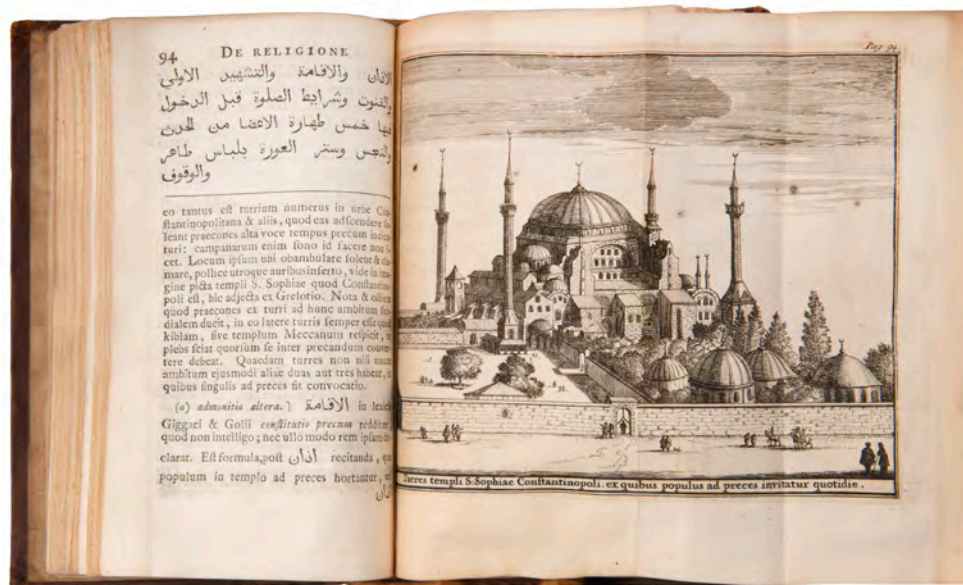 94 DE RELIGIONE
الاذان والاقامة والتشهيد الاولي
والقنوت وشرايط الصلوة قبل الدخول
فيها خمس طهارة الاعضا من الحدث
والنجس وستر العورة بلباس طاهر
والوقوف
eo tantus eſt turrium numerus in urbe Con-
ſtantinopolitana & aliis, quod eas adſcendere ſo-
leant praecones alta voce tempus precum indica-
turi: campanarum enim ſono id facere non li-
cet. Locum ipſum ubi obambulare ſolent & cla-
mare, pollice utroque auribus inſerto, vide in ima-
gine picta templi S. Sophiae quod Conſtantino-
poli eſt, hic adjecta ex Grelotio. Nota & oſtium
quod praecones ex turri ad hunc ambitum
dialem ducit, in eo latere turris ſemper eſſe quod
kiblam, ſive templum Meccanum reſpicit, ut
plebs ſciat quorſum ſe inter precandum conver-
tere debeat. Quaedam turres non niſi unum
ambitum ejuſmodi aliae duas aut tres habent, in
quibus ſingulis ad preces fit convocatio.
(a) admonitio altera.) الاقامة in lexicis
Giggaei & Golii conſtitutio precum redditur,
quod non intelligo; nec ullo modo rem ipſam de-
clarat. Eſt formula, poſt اذان recitanda, qua
populum in templo ad preces hortantur, ut
اذان
Pag. 94.
Turres templi S. Sophiae Conſtantinopoli. ex quibus populus ad preces invitatur quotidie.